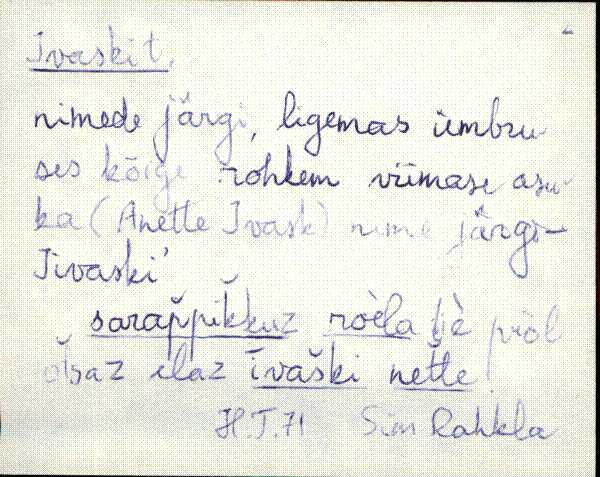 Ivaskit.
nimede järgi, ligemas ümbru-
ses kõige rohkem viimase asu-
ka (Anette Ivask) nime järgi-
Iivaski'
sarap̆p̆ik̆k̆uz roèla t́è piòl
ot̆saz elaz īvaški net̆t̆e.
H.T. 71 Siim Rahkla